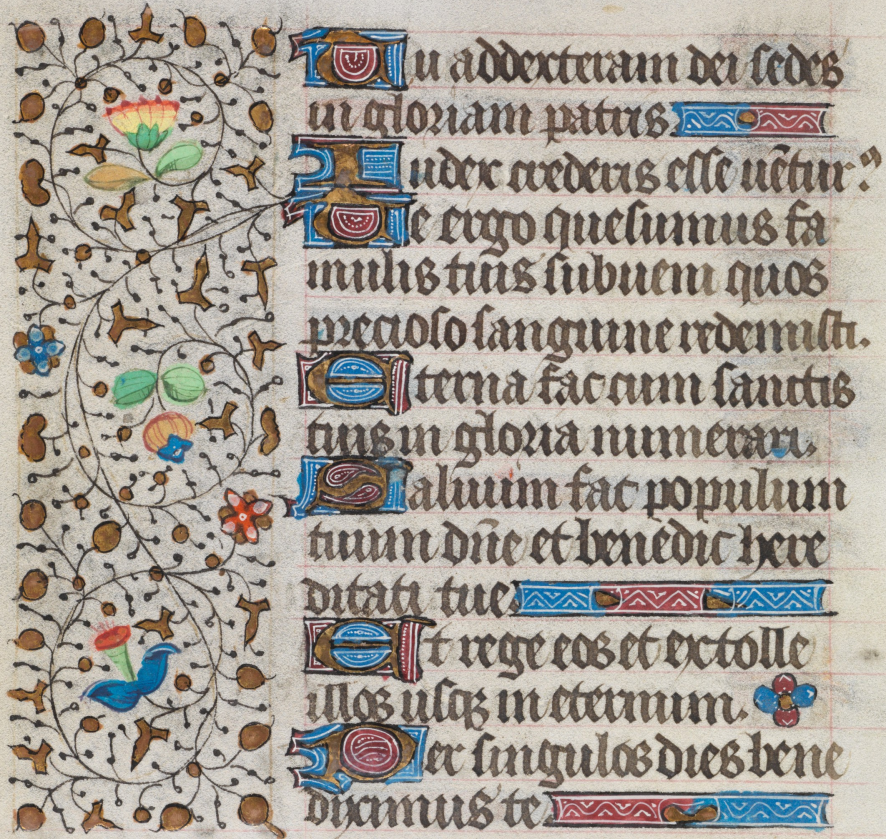 Tu addexteram dei sedes
in gloriam patris.
Iudex crederis esse uẽtur⁹.
Te ergo quesumus fa
mulis tuis subueni quos
precioso sanguine redemisti.
Eterna fac cum sanctis
tuis in gloria numerari.
Saluum fac populum
tuum dñe et benedic here
ditati tue.
Et rege eos et extolle
illos usqꝫ in eternum.
Per singulos dies bene
dicimus te.